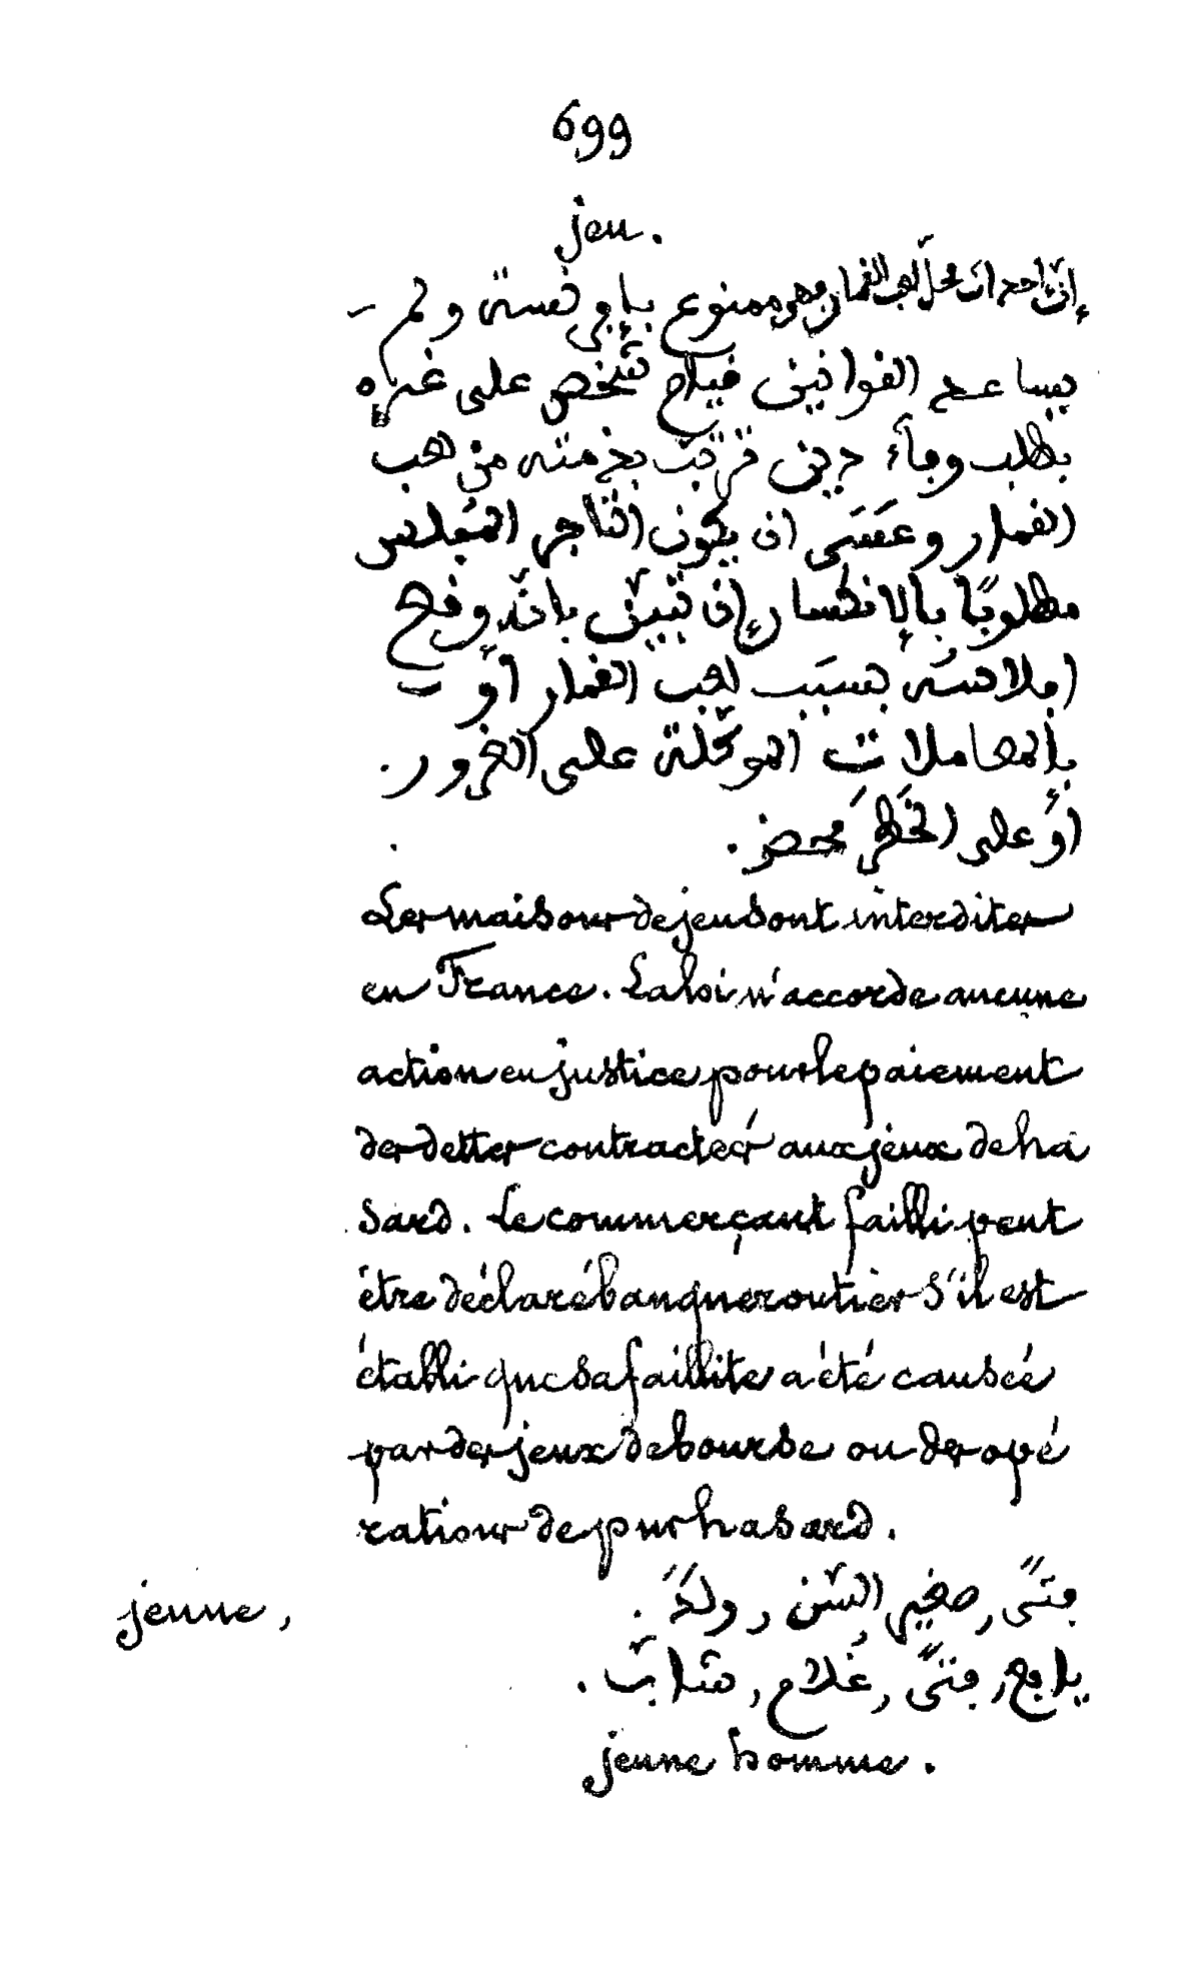 699
jeu.
إنّ احداث محلّ لعب القمار فهو ممنوع بإفرنسة ولم
يساعد القوانين قيام شخص على غيره
بطلب وفاء دين ترتّب بذمته من لعب
القمار وعسى ان يكون التاجر المفلس
مطلوبًا بالإنكسار إن تبيّن بانّه وقع
افلاسه بسبب لعب القمار أو
بالمعاملات الموكّلة على الغرور
أو على الخطر محض.
Les maisons de jeu sont interdites
en France. La loi n'accorde aucune
action en justice pour le paiement
des dettes contractées aux jeux de ha
sard. Le commerçant failli peut
être déclaré banqueroutier s'il est
établi que sa faillite a été causée
par des jeux de bourse ou des opé
rations de pur hasard.
jeune, فتىً, صغير السّن, ولدٌ.
يافع, فتىً, غلام, شابّ.
jeune homme.